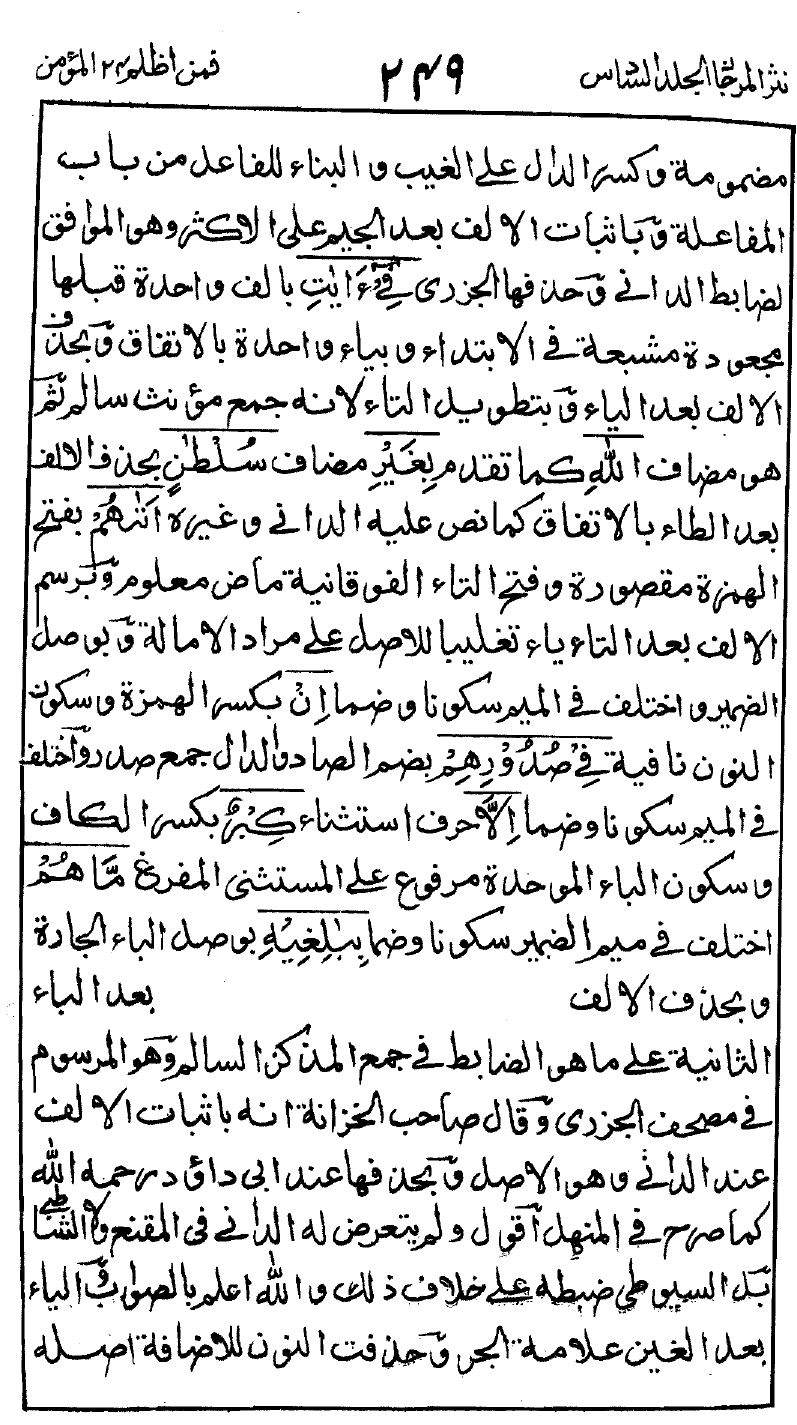 نثر المرجان المجلد السادس ٢٤٩ فمن اظلم ٢٤ المؤمن
مضمومة وكسر الدال على الغيب والبناء للفاعل من باب
المفاعلة وَباثبات الالف بعد الجيم على الاكثر وهو الموافق
لضابط الدانى وَحذفها الجزرى فِىٓ ءَايٰتِ بالف واحدة قبلها
مجعودة مشبعة فى الابتداء وبياء واحدة بالاتفاق وَبحذف
الالف بعد الياء وَبتطويل التاء لانه جمع مؤنث سالم ثم
هو مضاف اللّٰهِ كما تقدم بِغَيْرِ مضاف سُلْطٰنٍ بحذف الالف
بعد الطاء بالاتفاق كما نص عليه الدانى وغيره اَتٰىهُمْ بفتح
الهمزة مقصورة وفتح التاء الفوقانية ماض معلوم وَبرسم
الالف بعد التاء ياء تغليبا للاصل على مراد الامالة وَبوصل
الضمير واختلف فى الميم سكونا وضما اِنْ بكسر الهمزة وسكون
النون نافية فِىْ صُدُوْرِهِمْ بضم الصاد والدال جمع صدر وَاختلف
فى الميم سكونا وضما اِلَّا حرف استثناء كِبْرٌ بكسر الكاف
وسكون الباء الموحدة مرفوع على المستثنى المفرغ مَّا هُمْ
اختلف فى ميم الضمير سكونا وضما بِبٰلِغِيْهِ بوصل الباء الجارة
وبحذف الالف بعد الباء
الثانية على ما هو الضابط فى جمع المذكر السالم وَهو المرسوم
فى مصحف الجزرى وَقال صاحب الخزانة انه باثبات الالف
عند الدانى وهو الاصل وَبحذفها عند ابى داؤد رحمه الله
كما صرح فى المنهل اَقول ولم يتعرض له الدانى فى المقنع ولا الشاطبى
بَل السيوطى ضبطه على خلاف ذلك والله اعلم بالصواب وَالياء
بعد الغين علامة الجر وَحذفت النون للاضافة اصله